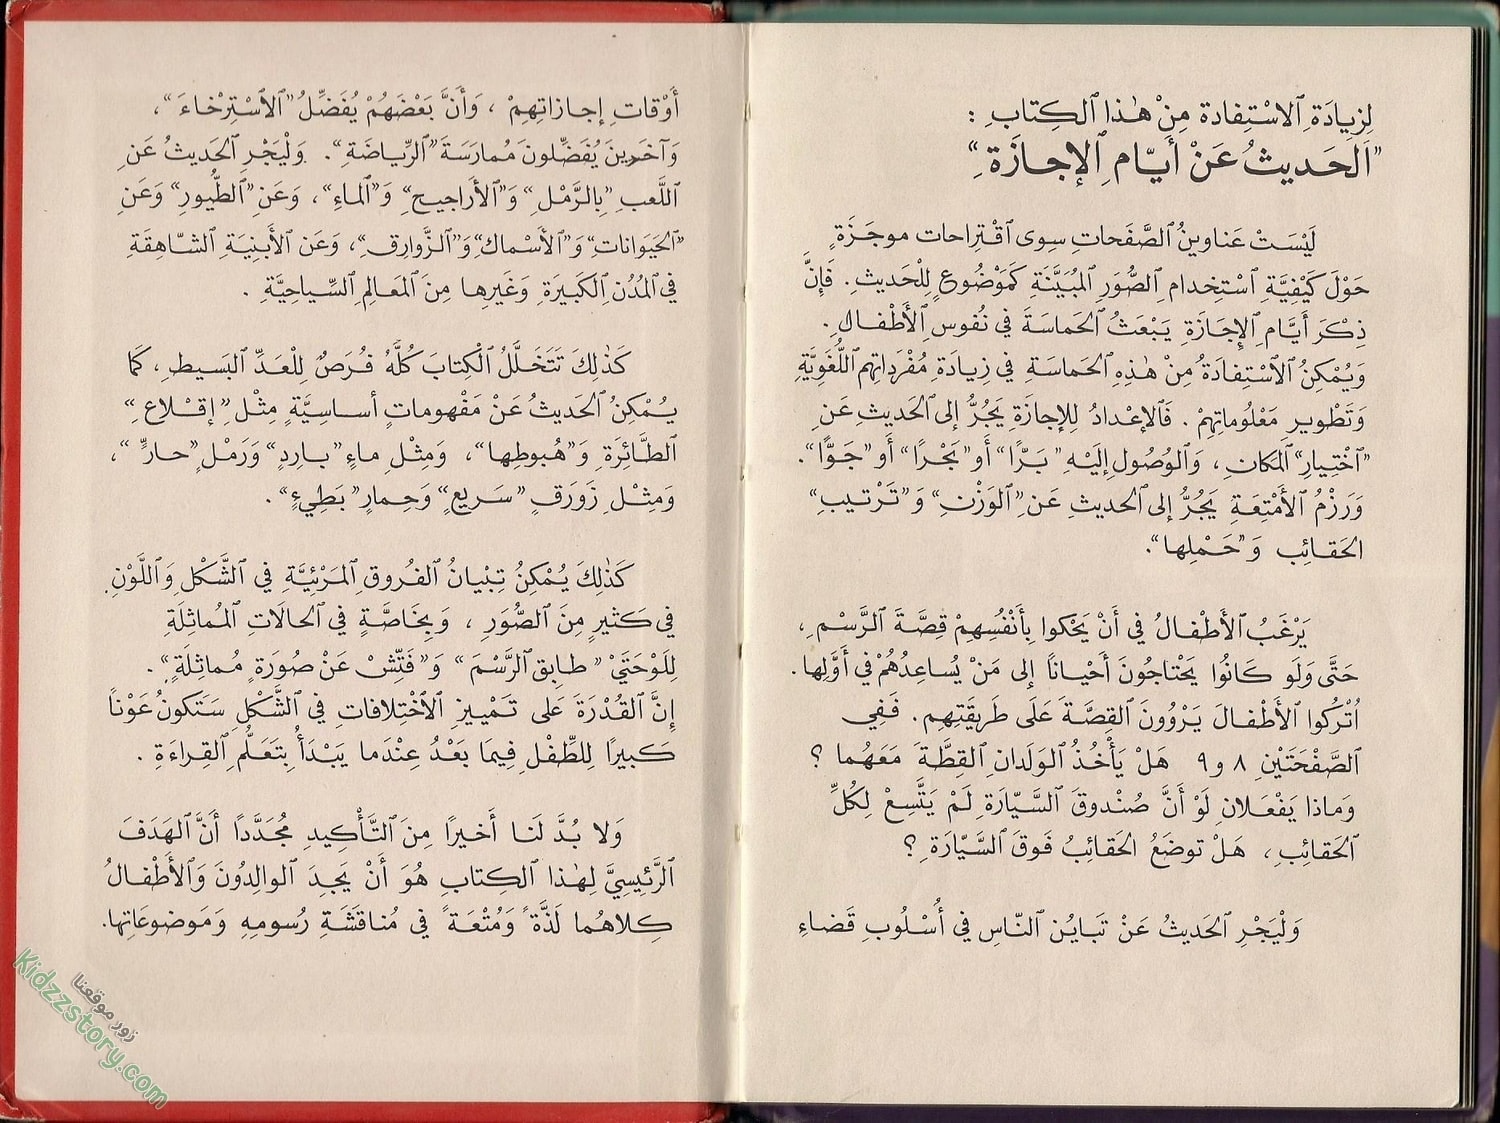 لِزِيادَةِ ٱلاسْتِفادة مِنْ هٰذا ٱلكِتابِ :
”اَلْحَديثُ عَنْ أَيّامِ ٱلإجازَةِ“
لَيْسَتْ عَناوينُ ٱلصَّفَحاتِ سِوى ٱقْتِراحات موجَزَةٍ
حَوْلَ كَيْفِيَّةِ ٱسْتِخدام ِٱلصُّوَرِ ٱلمُبَيَّنَةِ كَمَوْضُوعٍ لِلْحَديثِ. فَإِنَّ
ذِكْرَ أَيَّام ِٱلإِجازَةِ يَبْعَثُ ٱلحَماسَةَ في نُفوس ِٱلأَطْفالِ.
وَيُمْكِنُ ٱلاسْتِفادَةُ مِنْ هٰذِهِ ٱلحَماسَةِ في زِيادَةِ مُفْرَداتِهِم ٱللُّغَوِيَّةِ
وَتَطْويرِ مَعْلُوماتِهِمْ . فَالإعْدادُ لِلإجازَةِ يَجُرُّ إلى ٱلحَديثِ عَنِ
”ٱخْتِيارِ“ ٱلمَكانِ ، وَٱلوُصُولِ إلَيْهِ ”بَرًّا“ أَو ”بَحْرًا“ أَو ”جَوًّا“.
وَرَزْمُ ٱلأَمْتِعَةِ يَجُرُّ إلى ٱلحَديثِ عَنِ ”ٱلوَزْنِ“ وَ”تَرْتيبِ“
ٱلحَقائِبِ وَ”حَمْلِها“.
يَرْغَبُ ٱلأَطْفالُ في أَنْ يَحْكوا بِأَنْفُسِهِمْ قِصَّةَ ٱلرَّسْمِ ،
حَتَّى وَلَو كَانُوا يَحْتاجُونَ أَحْيانًا إلى مَنْ يُساعِدُهُمْ في أَوَّلِها.
اُتْرُكُوا ٱلأَطْفالَ يَرْوُونَ ٱلقِصَّةَ عَلَى طَريقَتِهِم . فَفِي
ٱلصَّفْحَتَيْنِ ٨ و٩ هَلْ يَأْخُذُ ٱلوَلَدانِ ٱلقِطَّةَ مَعَهُما ؟
وَماذا يَفْعَلانِ لَوْ أَنَّ صُنْدوقَ ٱلسَّيّارَةِ لَمْ يَتَّسِعْ لِكُلِّ
ٱلحَقائِبِ ، هَلْ توضَعُ ٱلحَقائِبُ فَوقَ ٱلسَّيّارَةِ ؟
وَلْيَجْرِ ٱلحَديثُ عَنْ تَبايُنِ ٱلنّاسِ في أُسْلُوبِ قَضاءِ
أَوْقاتِ إجازاتِهِمْ ، وَأَنَّ بَعْضَهُمْ يُفَضِّلُ ”ٱلاسْتِرْخاءَ“،
وَآخَرينَ يُفَضِّلونَ مُمارَسَةَ ”ٱلرِّياضَةِ“. وَلْيَجْرِ ٱلحَديثُ عَنِ
ٱللَّعِبِ ”بِالرَّمْلِ“ وَ”ٱلأَراجيحِ“ وَ”ٱلماءِ“، وَعَنِ ”ٱلطُّيورِ“ وَعَنِ
”ٱلحَيَوانَاتِ“ وَ”ٱلأَسْماكِ“ وَ”ٱلزَّوارِقِ“، وَعَنِ ٱلأَبنِيَةِ ٱلشّاهِقَةِ
في ٱلمُدُنِ ٱلكَبيرَةِ وَغَيْرِها مِنَ ٱلمَعالِمِ ٱلسِّياحِيَّةِ .
كَذٰلِكَ تَتَخَلَّلُ ٱلكِتابَ كُلَّهُ فُرَصٌ لِلْعَدِّ ٱلبَسيطِ ، كَمَا
يُمْكِنُ ٱلحَديثُ عَنْ مَفْهوماتٍ أَساسِيَّةٍ مِثْلِ ”إِقْلاعِ“
ٱلطَّائِرَةِ وَ”هُبوطِها“، وَمِثْلِ ماءٍ ”بارِدٍ“ وَرَمْلٍ ”حارٍّ“،
وَمِثْلِ زَوْرَقٍ ”سَريعٍ“ وَحِمارٍ ”بَطِيءٍ“.
كَذٰلِكَ يُمْكِنُ تِبْيانُ ٱلفُروقِ ٱلمَرْئِيَّةِ في ٱلشَّكْلِ وَٱللَّوْنِ
في كَثيرٍ مِنَ ٱلصُّوَرِ ، وَبِخَاصَّةٍ في ٱلحَالَاتِ ٱلمُماثِلَةِ
لِلَوْحَتَيْ ”طابِق ٱلرَّسْمَ“ وَ”فَتِّشْ عَنْ صُورَةٍ مُماثِلَةٍ“.
إِنَّ ٱلقُدْرَةَ عَلى تَمْييزِ ٱلاخْتِلافاتِ في ٱلشَّكْلِ سَتَكونُ عَوْنًا
كَبيرًا لِلطِّفْلِ فِيمَا بَعْدُ عِنْدَما يَبْدَأُ بِتَعَلُّمِ ٱلقِراءَةِ .
وَلا بُدَّ لَنا أَخيرًا مِنَ ٱلتَّأْكيدِ مُجَدَّدًا أَنَّ ٱلهَدَفَ
ٱلرَّئِيسِيَّ لِهٰذا ٱلكِتابِ هُوَ أَنْ يَجِدَ ٱلوالِدُونَ وَٱلأَطْفالُ
كِلاهُما لَذَّةً وَمُتْعَةً في مُناقَشَةِ رُسومِهِ وَمَوْضوعَاتِها.
زور موقعنا
Kidzzstory.com